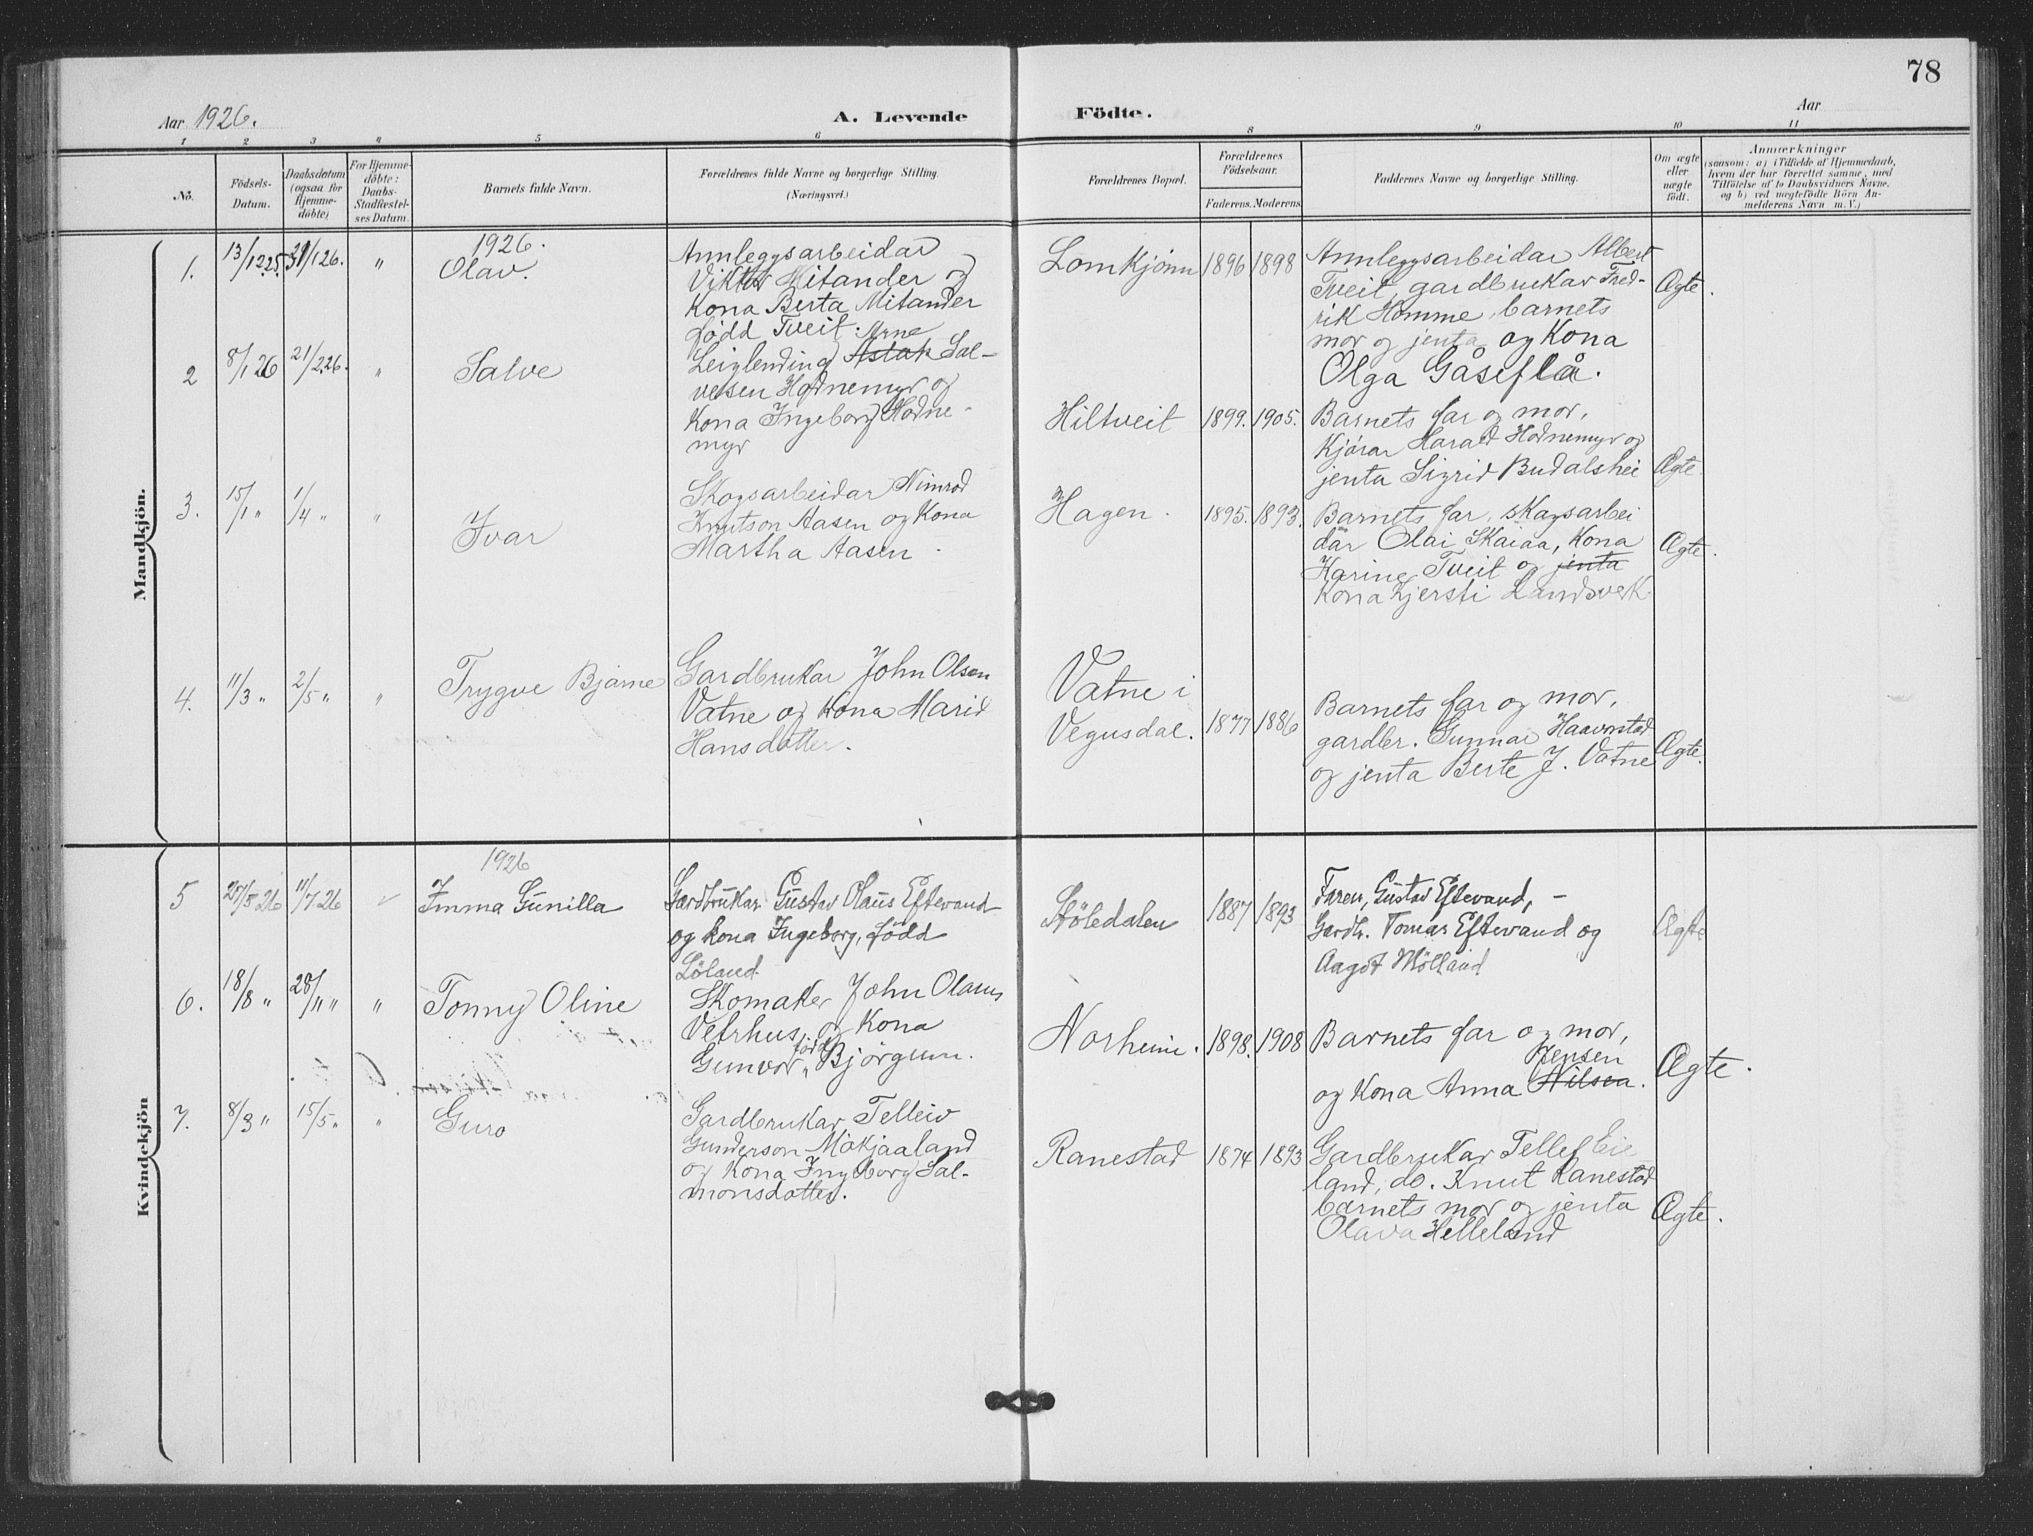 78
Aar 1926.
A. Levende Födte.
Aar
1 2 3 4 5 6 8 9 10 11
No.
Födsels-Datum.
Daabsdatum (ogsaa for Hjemme-döbte)
For Hjemme-döbte: Daabs-Stadfæstel-ses Datum.
Barnets fulde Navn.
Forældrenes fulde Navne og borgerlige Stilling.
(Næringsvei.)
Forældrenes Bopæl.
Forældrenes Födselsaar.
Faderens. Moderens.
Faddernes Navne og borgerlige Stilling.
Om ægte eller uægte födt.
Anmærkninger
(saasom: a) i Tilfælde af Hjemmedaab,
hvem der har forrettet samme, med
Tilföielse af to Daabsvidners Navne,
og b) ved uægtefödte Börn An-
melderens Navn m. V.)
Mandkjön.
1926.
1. 13/12 25. 31/1 26. " Olav.
Annleggsarbeidar
Viktor Mitander og
Kona Berta Mitander
född Tveit.
Lomkjönn 1896 1898
Annleggsarbeidar Albert
Tveit, gardbrukar Fred-
rik Homme, barnets
mor og jenta og Kona
Olga Gåseflå.
Ægte.
2 8/1 26 21/2 26. " Salve
Arne
Leiglending Aslak Sal-
vesen Hodnemyr og
Kona Ingeborg Hodne-
myr
Hiltveit 1899. 1905.
Barnets far og mor,
Kjörar Harald Hodnemyr og
jenta Sigrid Budalshei
Ægte
3. 15/1 " 1/4 " " Ivar
Skogsarbeidar Nimrod
Knutson Aasen og Kona
Martha Aasen.
Hagen. 1895. 1893.
Barnets far, skogsarbei
dar Olai Skaiaa, Kona
Karine Tveit og jenta
Kona Kjersti Landsverk.
Ægte.
4. 11/3 " 2/5 " " Trygve Bjarne
Gardbrukar John Olsen
Vatne og Kona Marid
Hansdotter.
Vatne i
Vegusdal. 1877 1886
Barnets far og mor,
gardbr. Gunnar Haavorstad
og jenta Berte J. Vatne
Ægte.
Kvindekjön
1926
5 /5 26 11/7 26 Imma Gunilla
Gardbrukar Gustav Olaus Eftevand
og kona Ingeborg, född
Löland.
Stöledalen 1887 1893
Faren, Gustav Eftevand, -
Gardbr. Tomas Eftevand og
Aagot Mölland
Ægte
6. 18/8 " 28/11 " " Tonny Oline
Skomaker John Olaus
Vetrhus, og Kona
Gunvor född Bjorgum.
Norheim. 1898. 1908
Barnets far og mor,
Jensen
og Kona Anna Nilsen.
Ægte.
7. 8/3 " 15/5 " " Guro
Gardbrukar Telleiv
Gunderson Mökjaaland
og Kona Ingeborg Sal-
monsdotter.
Ranestad 1874 1893
Gardbrukar Tellef Eie
land, do. Knut Ranestad
barnets mor og jenta
Olava Helleland
Ægte.